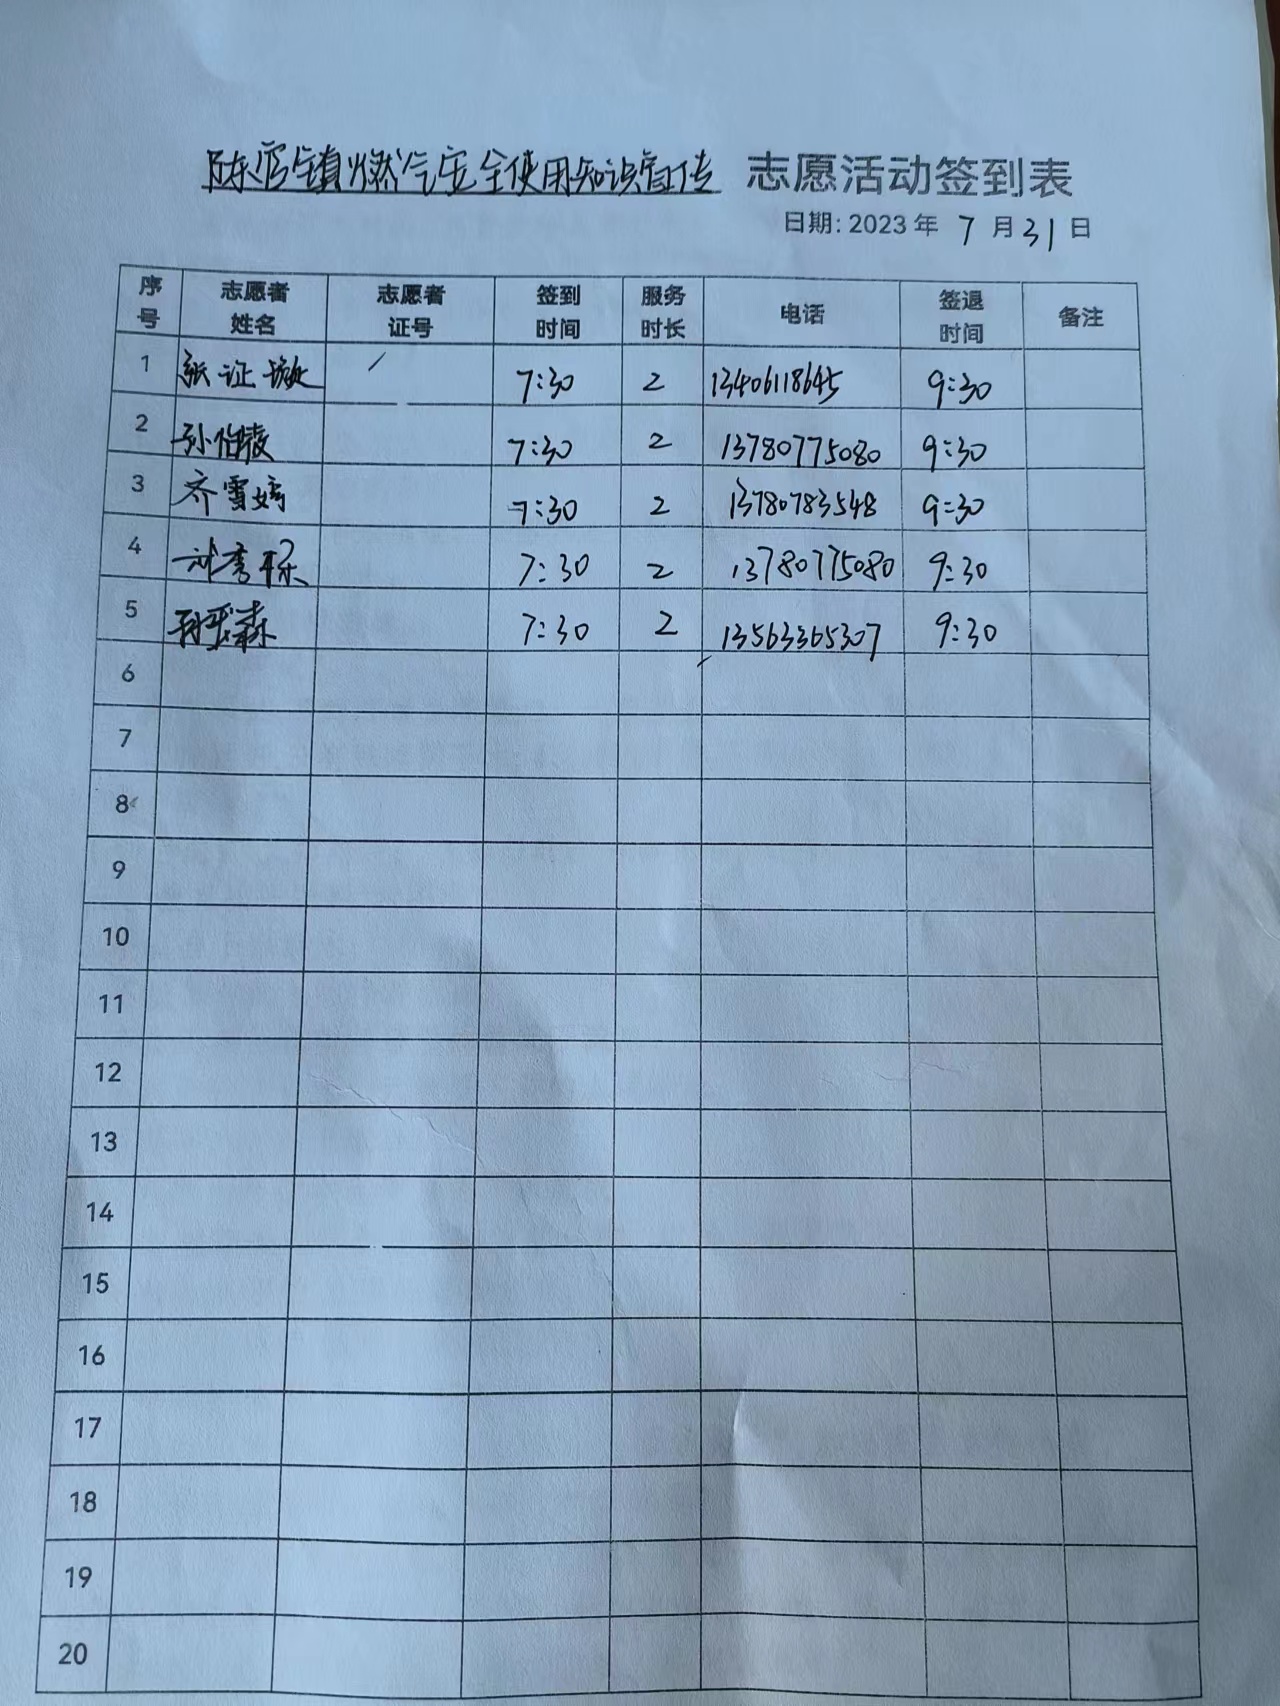 陈官镇燃气安全使用知识宣传 志愿活动签到表
日期: 2023 年 7 月 31 日
序号 志愿者姓名 志愿者证号 签到时间 服务时长 电话 签退时间 备注
1 张证 / 7:30 2 13406118645 9:30
2 孙伯 7:30 2 13780775080 9:30
3 齐雪婷 7:30 2 13780783548 9:30
4 7:30 2 13780775080 9:30
5 7:30 2 13563365307 9:30
6
7
8
9
10
11
12
13
14
15
16
17
18
19
20